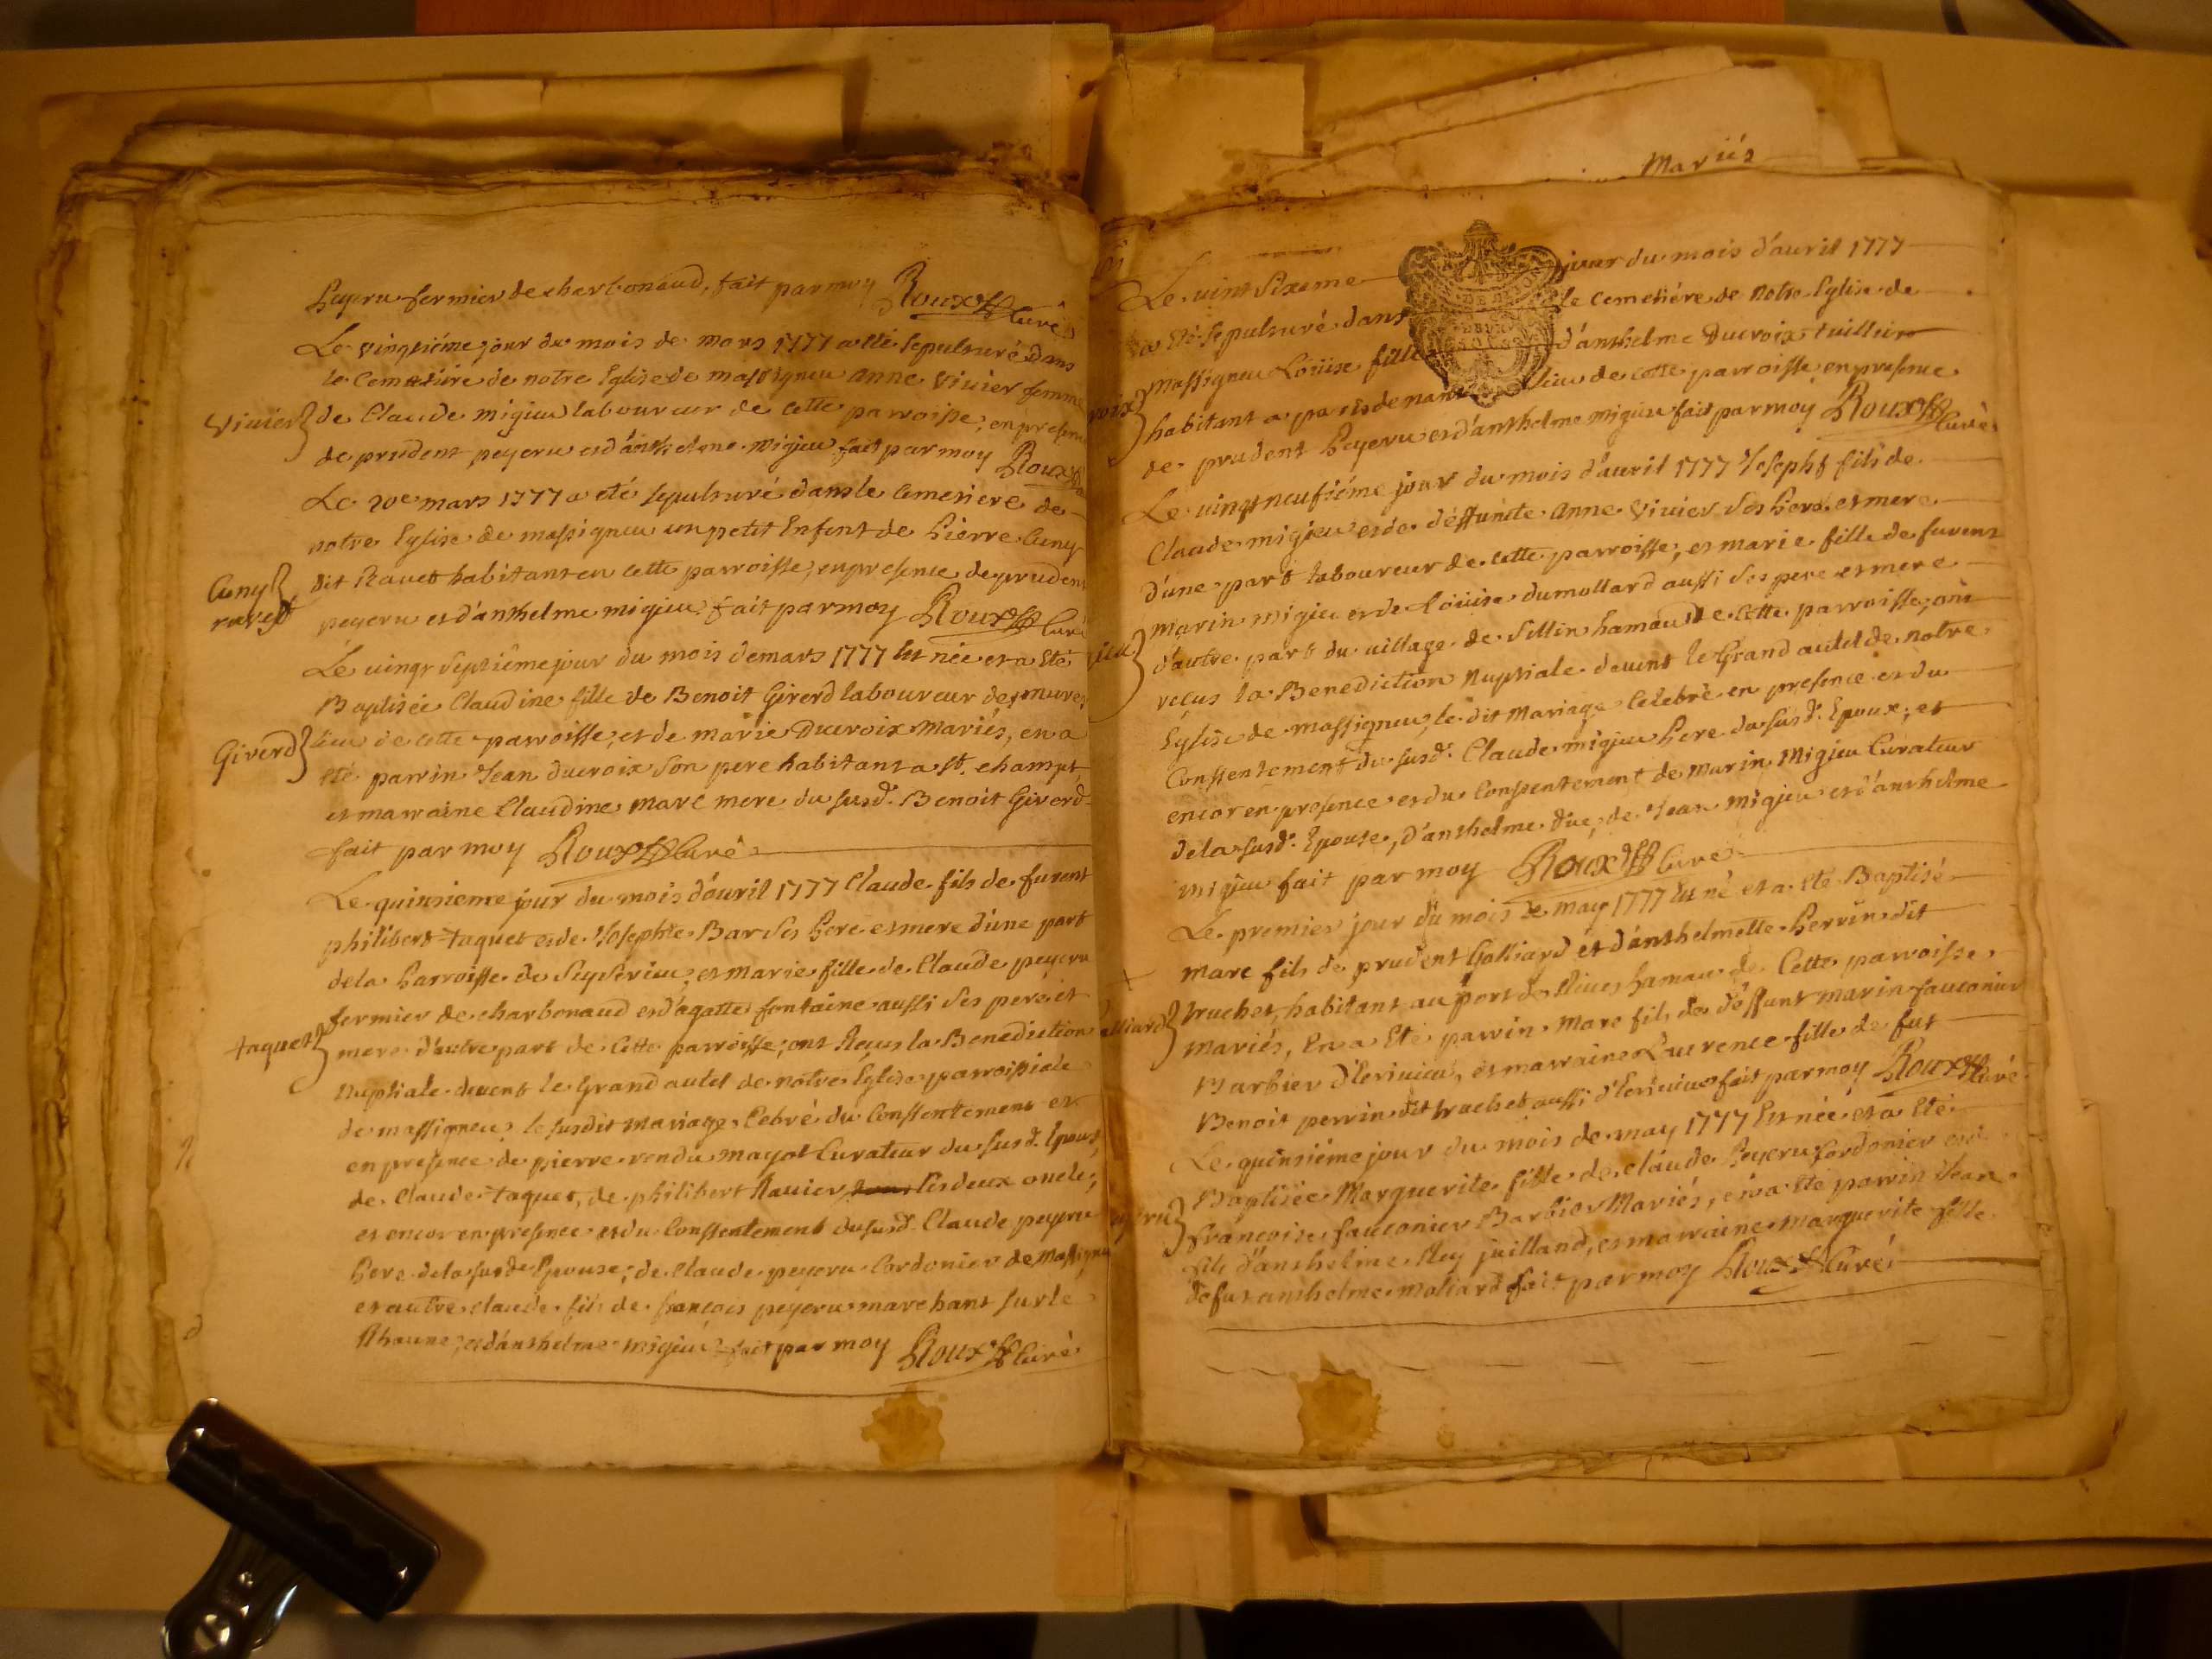 peyeru fermier de charbonaud, fait par moy Roux curé
Le vingtiéme jour du mois de mars 1777 a été sepulturé dans
le Cemetiére de notre Eglise de massigneu anne Vivier femme
Vivier de Claude migieu laboureur de cette parroisse, en presence
de prudent peyeru et d'anthelme migieu fait par moy Roux
Le 20e mars 1777 a eté sepulturé dans le Cemetiere de
notre Eglise de massigneu un petit Enfent de Pierre Cuny
Cuny ravet dit Ravet habitant en cette parroisse, en presence de prudent
peyeru et d'anthelme migieu fait par moy Roux curé
Le vingt septiême jour du mois de mars 1777 Est née et a Eté
Baptisée Claudine fille de Benoit Girerd laboureur de
Girerd lieu de cette parroisse, et de marie Ducroix Mariés, en a
eté parrin Jean ducroix son pere habitant a St. champt
et marraine Claudine marc mere du susd. Benoit Girerd
fait par moy Roux curé
Le quinsieme jour du mois d'avril 1777 Claude fils de furent
philibert taquet et de Josephte Bar ses Pere et mere d'une part
de la Parroisse de Seyserieu, et marie fille de Claude peyeru
fermier de charbonaud et d'agatte fontaine aussi ses pere et
taquet mere d'autre part de cette parroisse; ont Reçus la Benediction
Nuptiale devent le Grand autel de notre Eglise parroissiale
de massigneu, le susdit Mariage Cebré du Consentement et
en presence de pierre rendu mayot Curateur du susd. Epoux,
de Claude taquet, de philibert Ravier ses deux oncle,
et encor en presence et du Consentement du susd. Claude peyeru
Pere de la susd. Epouse, de Claude peyeru Cordonier de Massigneu
et autre Claude fils de françois peyeru marchant sur le
Rhaune, et d'anthelme migieu fait par moy Roux curé
Mariés
Le vint sixeme jour du mois d'avril 1777
a Eté sepulturé dans le Cemetiére de notre Eglise de
Massigneu Loüise fille d'anthelme Ducroix tuillier
roix habitant a lieu de cette parroisse en presence
de prudent Peyeru et d'anthelme migieu fait par moy Roux curé
Le vingt neufiéme jour du mois d'avril 1777 Joseph fils de
Claude migieu et de déffuncte anne Vivier ses Pere et mere
d'une part laboureur de cette parroisse, et marie fille de furent
marin migieu et de Loüise dumollard aussi ses pere et mere
ieu d'autre part du village de Sillin hamau de cette parroisse, ont
reçus la Benediction Nuptiale devent le Grand autel de notre
Eglise de massigneu, le dit Mariage Celebré en presence et du
Consentement du susd. Claude migieu Pere du susd. Epoux, et
encor en presence et du Consentement de marin Migieu Curateur
de la susd. Epouse, d'anthelme duc, de Jean migieu et d'anthelme
migieu fait par moy Roux curé
Le premier jour du mois de may 1777 Est né et a Eté Baptisé
marc fils de prudent Galliard et d'anthelmette Perrin dit
alliard truchet, habitant au port de Rives hamau de Cette parroisse,
mariés, En a Eté parrin Marc fils de déffunt marin fauconier
Barbier d'Ecrivieu, et marraine Laurence fille de fut
Benoit perrin dit truchet aussi d'Ecrivieu fait par moy Roux curé
Le quinsiéme jour du mois de may 1777 Est née et a Eté
Baptisée Marguerite fille de Claude Peyeru Cordonier et de
yeru françoise fauconier Barbier Mariés, en a Eté parrin Jean
fils d'anthelme Rey juilland, et marraine Marguerite fille
de fut anthelme Maliard fait par moy Roux Curé